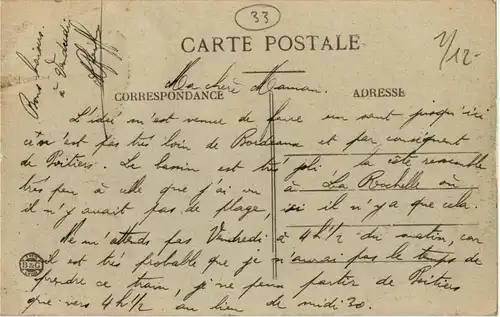 33
CARTE POSTALE
1/12-
Bons baisers
à Vendredi
Ma chère Maman.
CORRESPONDANCE
ADRESSE
L'idée m'est venue de faire un saut jusqu'ici
ce n'est pas très loin de Bordeaux et par conséquent
de Poitiers. Le bassin est très joli la côte ressemble
très peu à celle que j'ai vu à La Rochelle où
il n'y avait pas de plage, ici il n'y a que cela.
Ne m'attends pas Vendredi à 4h1/2 du matin, car
il est très probable que je n'aurai pas le temps de
prendre ce train, je ne peux partir de Poitiers
que vers 4h1/2 au lieu de midi 30.
B&G